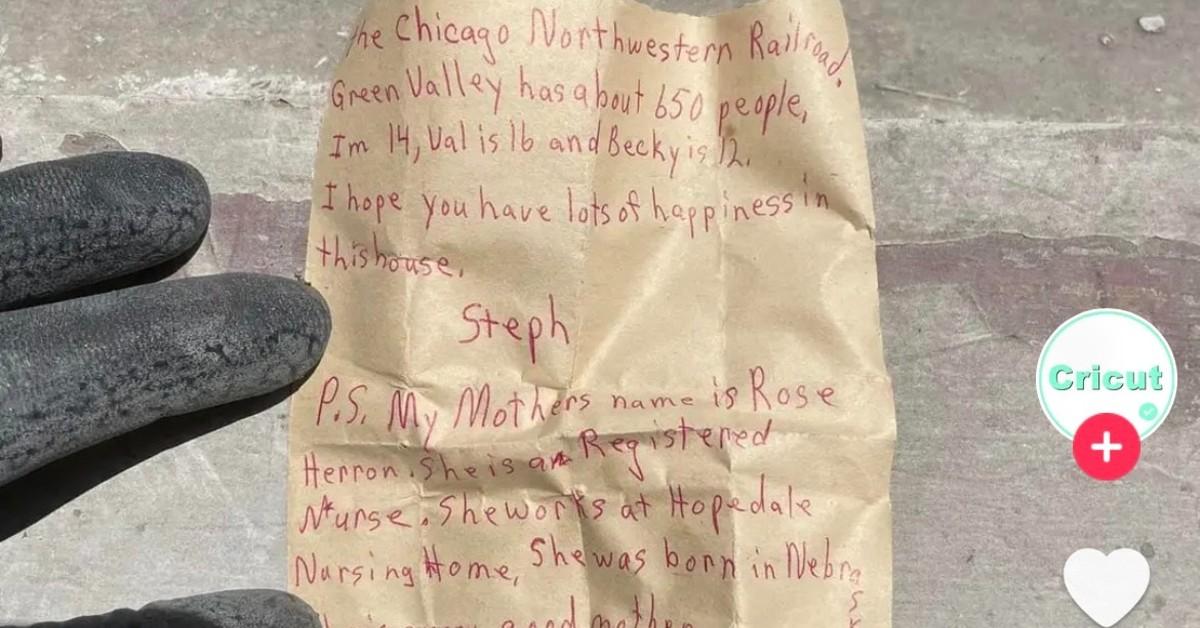 he Chicago Northwestern Railroad.
Green Valley has about 650 people,
Im 14, Val is 16 and Becky is 12.
I hope you have lots of happiness in
this house.
Steph
P.S. My Mothers name is Rose
Herron. She is an Registered
Nurse. She works at Hopedale
Nursing Home, She was born in Nebrask
good mother
Cricut